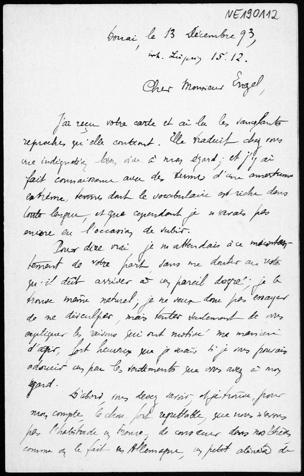 NE190112
Douai, le 13 Décembre 93,
15.12.
Cher Monsieur Engel,
J'ai reçu votre carte et ai lu les sanglants
reproches qu'elle contient. Elle traduit chez vous
une indignation bien vive à mon égard, et j'y ai
fait connaissance avec des termes d'une amertume
extrême, termes dont le vocabulaire est riche dans
toute langue, et que cependant je n'avais pas
encore eu l'occasion de subir.
Pour dire vrai je m'attendais à ce
de votre part sans me douter au reste
qu'il dût arriver à un pareil degré; je le
trouve même naturel, je ne veux donc pas essayer
de me disculper, mais tenter seulement de vous
expliquer les raisons qui ont motivé ma manière
d'agir, fort heureux que je serais si je vous pouvais
adoucir un peu les sentiments que vous avez à mon
égard.
D'abord vous devez savoir, pour
mon compte la chose fort regrettable, que nous n'avons
pas l'habitude en France, de conserver dans nos
comme on le fait en Allemagne, un petit